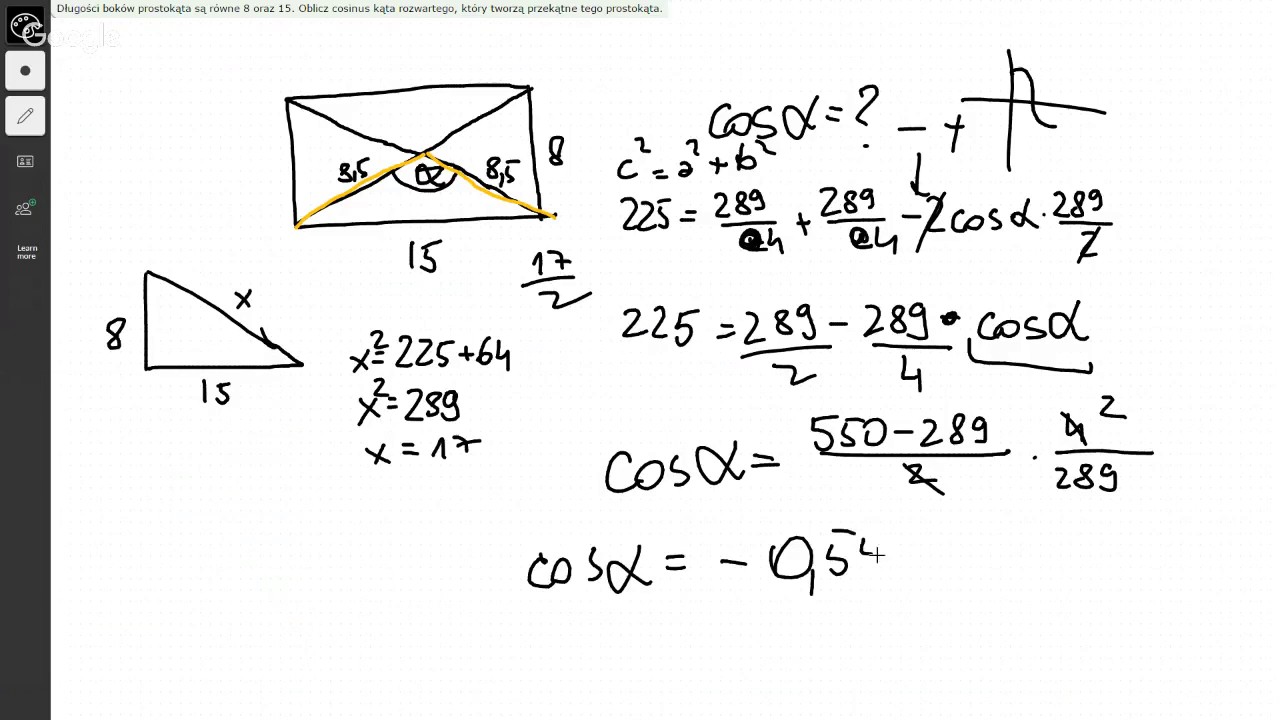 Długości boków prostokąta są równe 8 oraz 15. Oblicz cosinus kąta rozwartego, który tworzą przekątne tego prostokąta.
Google
Learn more
8,5 α 8,5
8
15
17/2
8
x
15
x² = 225+64
x² = 289
x = 17
cosα = ? - +
c² = a² + b²
225 = 289/4 + 289/4 - 2cosα · 289/2
225 = 289/2 - 289/4 · cosα
cosα = 550-289/2 · 4 2/289
cosα = - 0,54